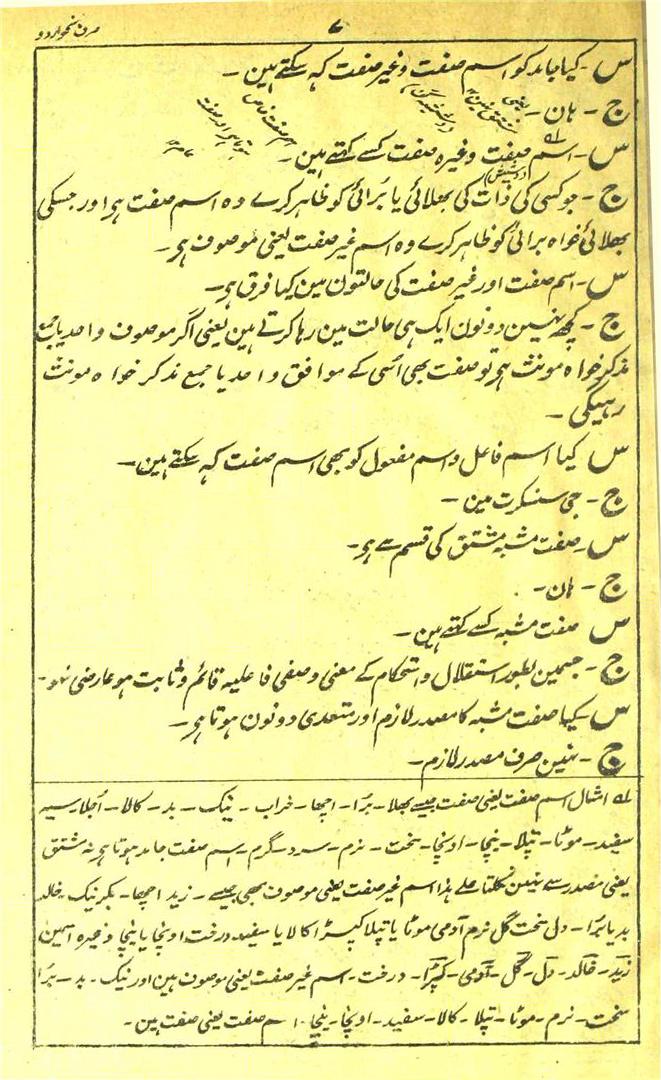 صرف نحو اردو
۷
س - کیا جامد کو اسم صفت وغیر صفت کہ سکتے ہین -
ج - ہان -
س - اسم صفت وغیرہ صفت کسے کہتے ہین -
ج - جو کسی کی ذات کی بھلائی یا بُرائی کو ظاہر کرے وہ اسم صفت ہے اور جسکی
بھلائی خواہ برائی کو ظاہر کرے وہ اسم غیر صفت یعنی موصوف ہے -
س - اسم صفت اور غیر صفت کی حالتون مین کیا فرق ہے -
ج - کچھ نہین دونون ایک ہی حالت مین رہا کرتے ہین یعنی اگر موصوف واحد یا جمع
مذکر خواہ مونث ہے تو صفت بھی اُسی کے موافق واحد یا جمع مذکر خواہ مونث
رہیگی -
س کیا اسم فاعل و اسم مفعول کو بھی اسم صفت کہ سکتے ہین -
ج - جی سنسکرت مین -
س - صفت مشبہ مشتق کی قسم سے ہے -
ج - ہان -
س صفت مشبہ کسے کہتے ہین -
ج - جسمین بطور استقلال و استحکام کے معنی وصفی فاعلیہ قائم و ثابت ہو عارضی نہو -
س - کیا صفت مشبہ کا مصدر لازم اور متعدی دونون ہوتا ہے -
ج - نہین صرف مصدر لازم -
۱ امثال اسم صفت یعنی صفت جیسے بھلا - بُرا - اچھا - خراب - نیک - بد - کالا - اُجلا سیہ
سفید - موٹا - پتلا - نیچا - اونچا - سخت - نرم - سرد - گرم - اسم صفت جامد ہوتا ہے نہ مشتق
یعنی مصدر سے نہین نکلتا علے ہذا اسم غیر صفت یعنی موصوف بھی جیسے - زید اچھا - بکر نیک خالد
بد یا بُرا - دل سخت گل نرم آدمی موٹا یا پتلا کپڑا کالا یا سفید درخت اونچا یا نیچا وغیرہ اسمین
زید - خالد - دل - گل - آدمی - کپڑا - درخت - اسم غیر صفت یعنی موصوف ہین اور نیک - بد - بُرا
سخت - نرم - موٹا - پتلا - کالا - سفید - اونچا - نیچا - اسم صفت یعنی صفت ہین -